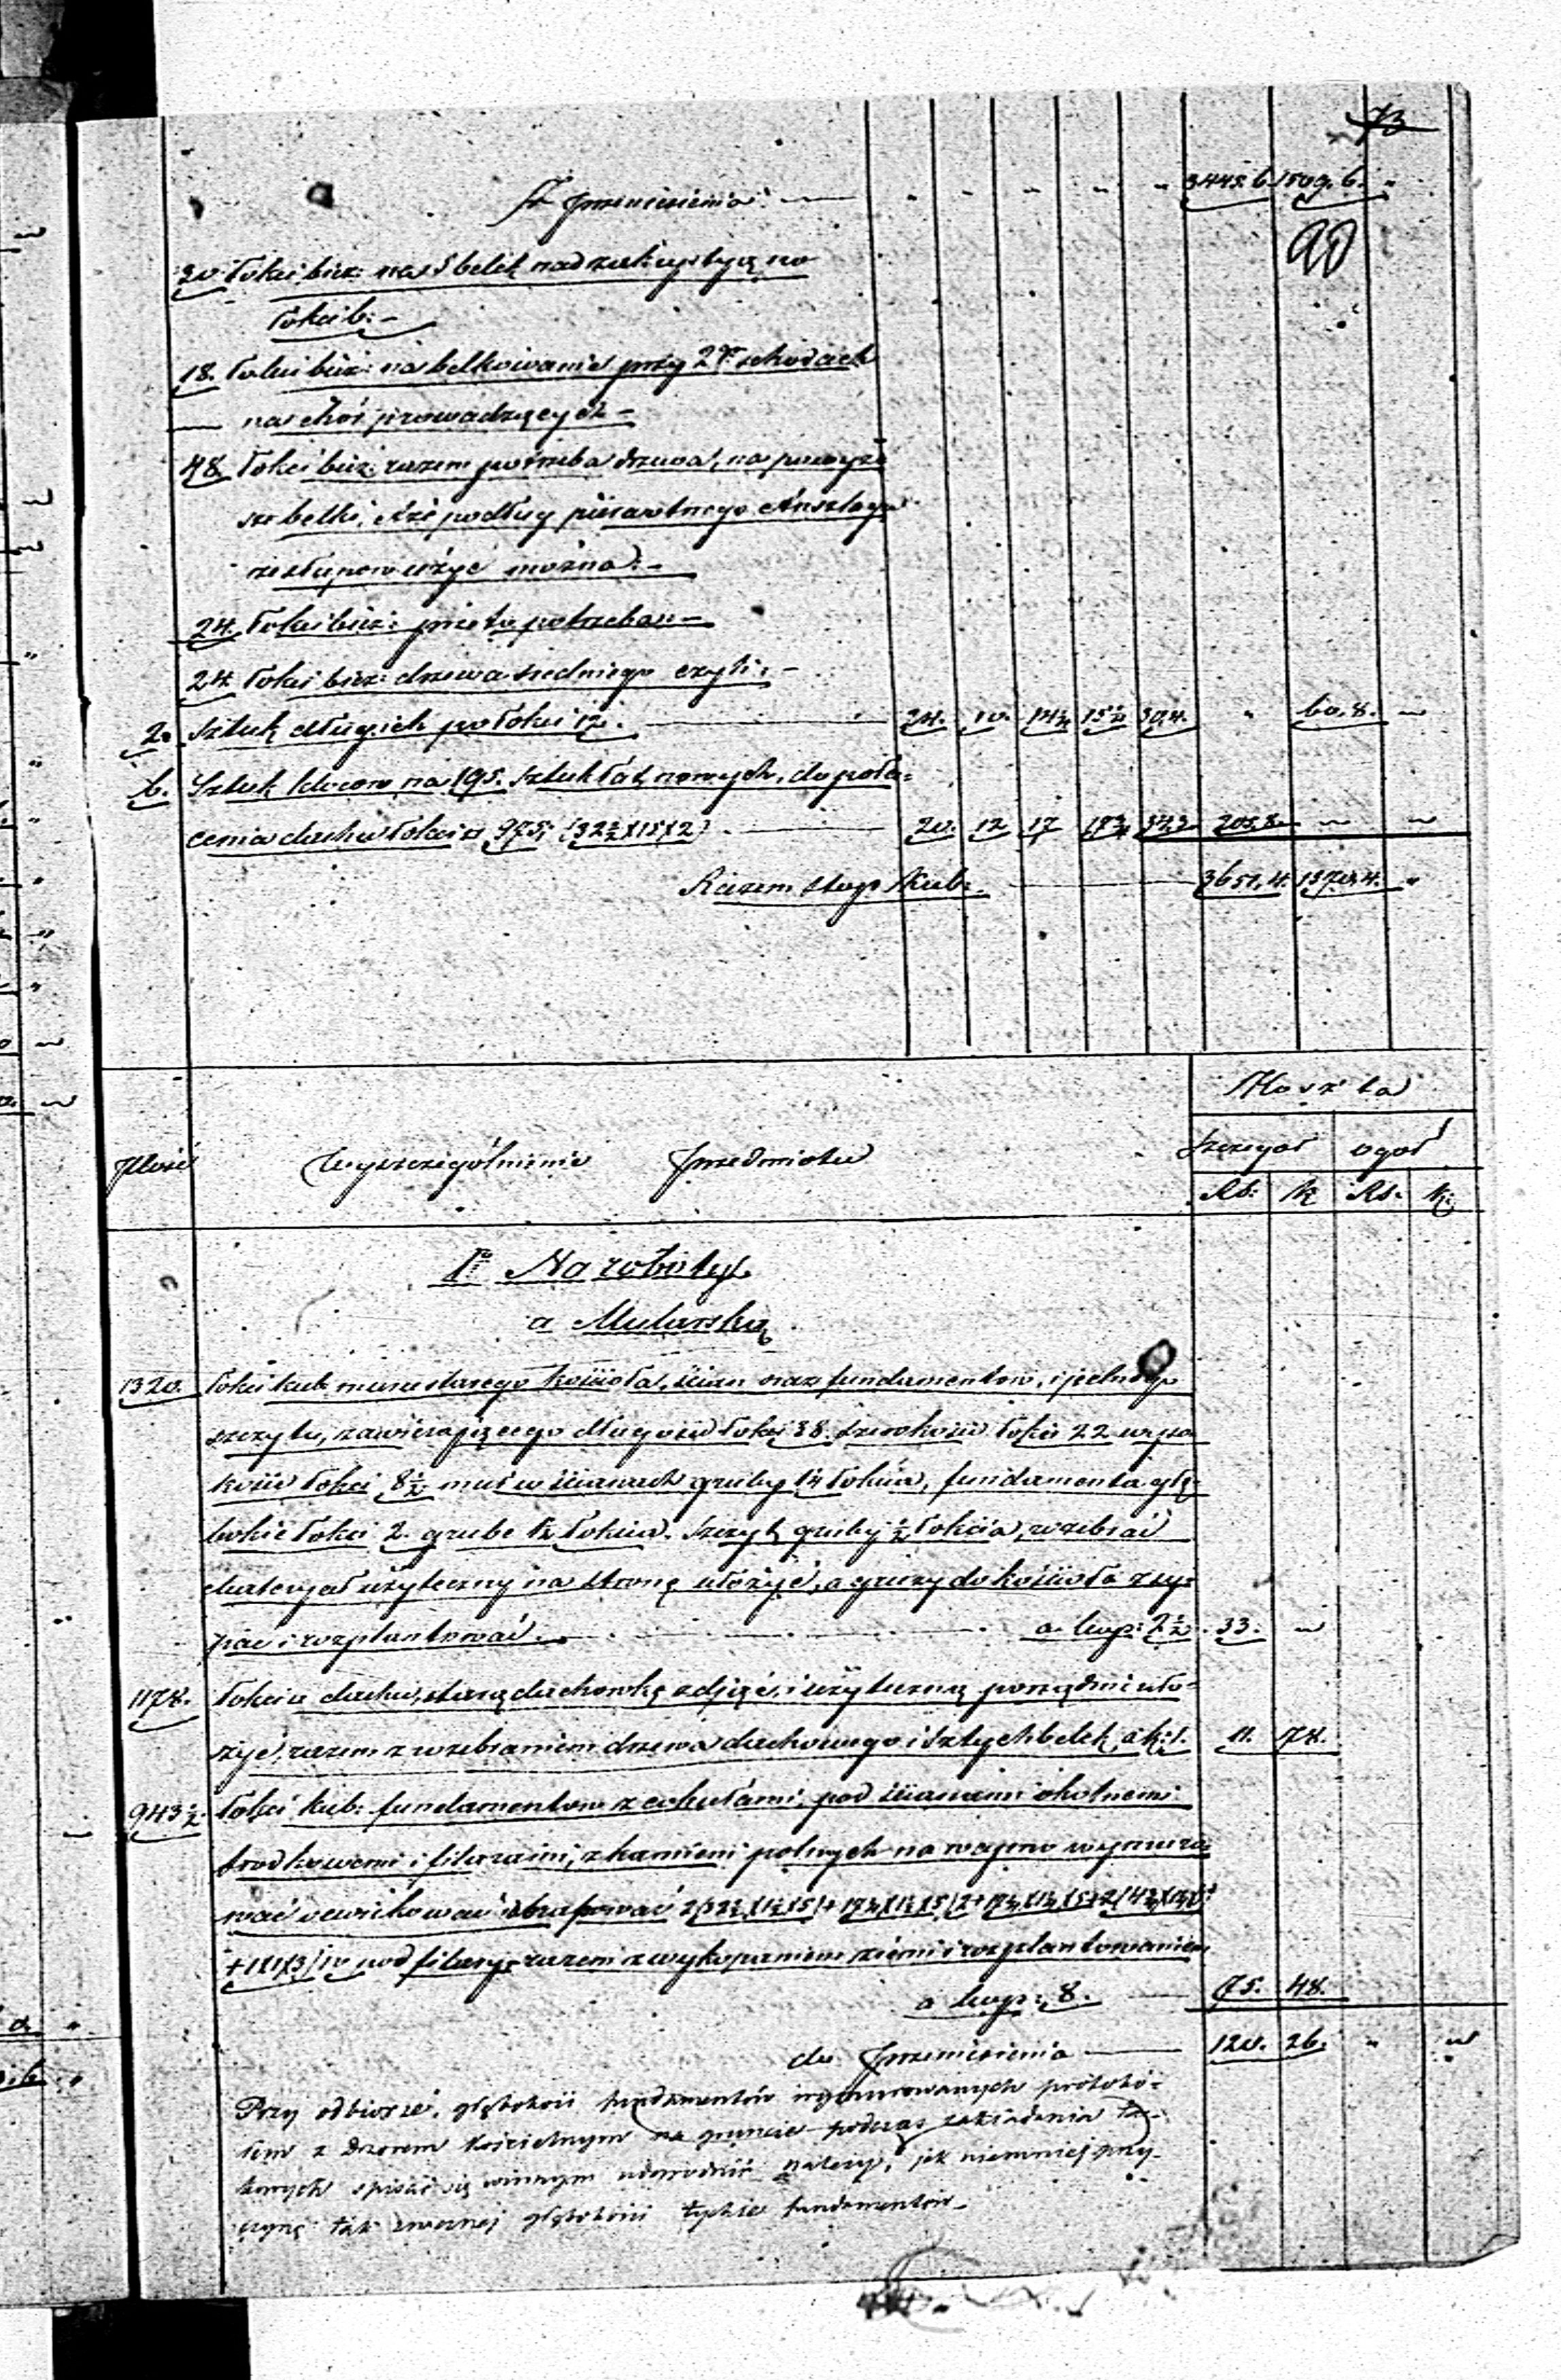 73
Z przeniesienia: — 3445.6. 1509.6. "
90
30 łokci bież: na 5 belek nad zakrystyą po
łokci 6: –
18. łokci bież: na belkowanie przy 2ch schodach
— na chór prowadzących –
48 łokci bież: razem potrzeba drzewa, na powyż
sze belki, że podług pierwotnego Anszlagu
użyć można: –
24. łokci bież: przeto potrzeba: –
24 łokci bież: drzewa średniego czyli: –
2. sztuk długich po łokci 12. — 24. 10. 15½ 30,4. " 60,8. —
6. Sztuk kloców na 195. sztuk łat nowych, do poła-
cenia dachu łokci □ 975, (32½X15X2) . — 20. 12 17 205,8. — —
Razem stóp Kub: — 3651,4. 1570,4. "
Koszta
Ilość Wyszczególnienie Przedmiotu Szczegół ogół
Rs: k Rs. k:
1o Na robotę
a Mularską
1320. łokci kub. muru starego kościoła, ścian oraz fundamentów, i jednego
szczytu, zawierającego długości łokci 38. szerokości łokci 22 wyso
kości łokci 8½ mur w ścianach gruby 1¼ łokcia, fundamenta głę-
bokie łokci 2. grube 1½ łokcia. Szczyt gruby ½ łokcia, rozebrać
materyał użyteczny na stronę ułożyć, a gruzy do kościoła zsy-
pać i rozplantować. — a kop: 2½ . 33. —
1174. łokci □ dachu, starą dachówkę zdjąć, i użyteczną porządnie uło-
żyć, razem z rozebraniem drzewa dachowego i sztychbelek, a k: 1. 11. 74.
943½. łokci kub: fundamentów z cokułami, pod ścianami okolnemi
środkowemi i filarami, z kamieni polnych na wapno wymuro
wać
+1X1X3)10 pod filary, razem z wykopaniem ziemi i rozplantowaniem
a kop: 8. — 75. 48.
do Przeniesienia — 120. 26. " "
Przy odbiorze, głębokość fundamentów wymurowanych protokó-
łem z dozorem kościelnym na gruncie podczas zakładania ta-
kowych spisać się winnym udowodnić należy, jak niemniej przy-
czynę tak znacznej głębokości tychże fundamentów –